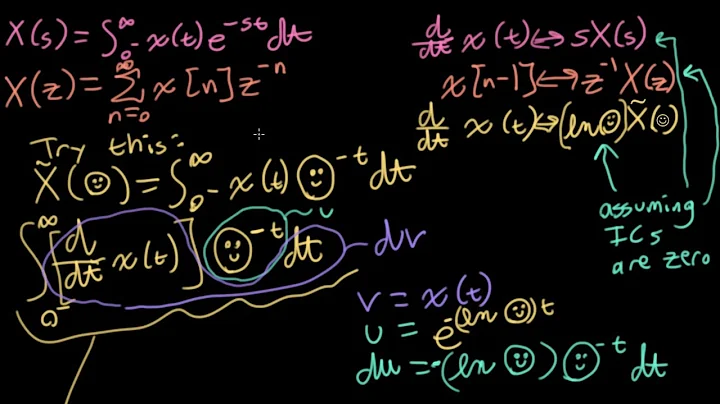 X(s) = ∫₀-^∞ x(t) e^-st dt
X(z) = ∑_{n=0}^∞ x[n] z^-n
Try this:
X̃(☺) = ∫₀-^∞ x(t) ☺^-t dt
∫₀-^∞ [d/dt x(t)] ☺^-t dt
u
dv
d/dt x(t) ↔ sX(s)
x[n-1] ↔ z^-1 X(z)
d/dt x(t) ↔ (ln☺) X̃(☺)
assuming
ICs
are zero
v = x(t)
u = e^-(ln ☺)t
du = -(ln ☺) ☺^-t dt